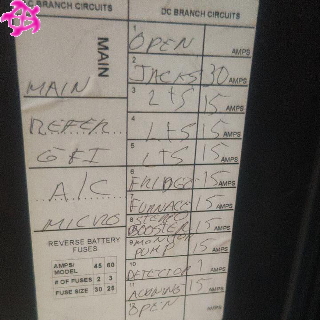 C BRANCH CIRCUITS
MAIN
MAIN
REFER
GFI
A/C
MICRO
REVERSE BATTERY
FUSES
AMPS/ MODEL 45 60
# OF FUSES 2 3
FUSE SIZE 30 25
DC BRANCH CIRCUITS
1 OPEN AMPS
2 JACKS 30 AMPS
3 LTS 15 AMPS
4 LTS 15 AMPS
5 LTS 15 AMPS
6 FRIDGE 15 AMPS
7 FURNACE 15 AMPS
8 STEREO BOOSTER 15 AMPS
9 MONITOR PUMP 15 AMPS
10 DETECTOR 7 AMPS
11 AWNING 15 AMPS
12 OPEN AMPS